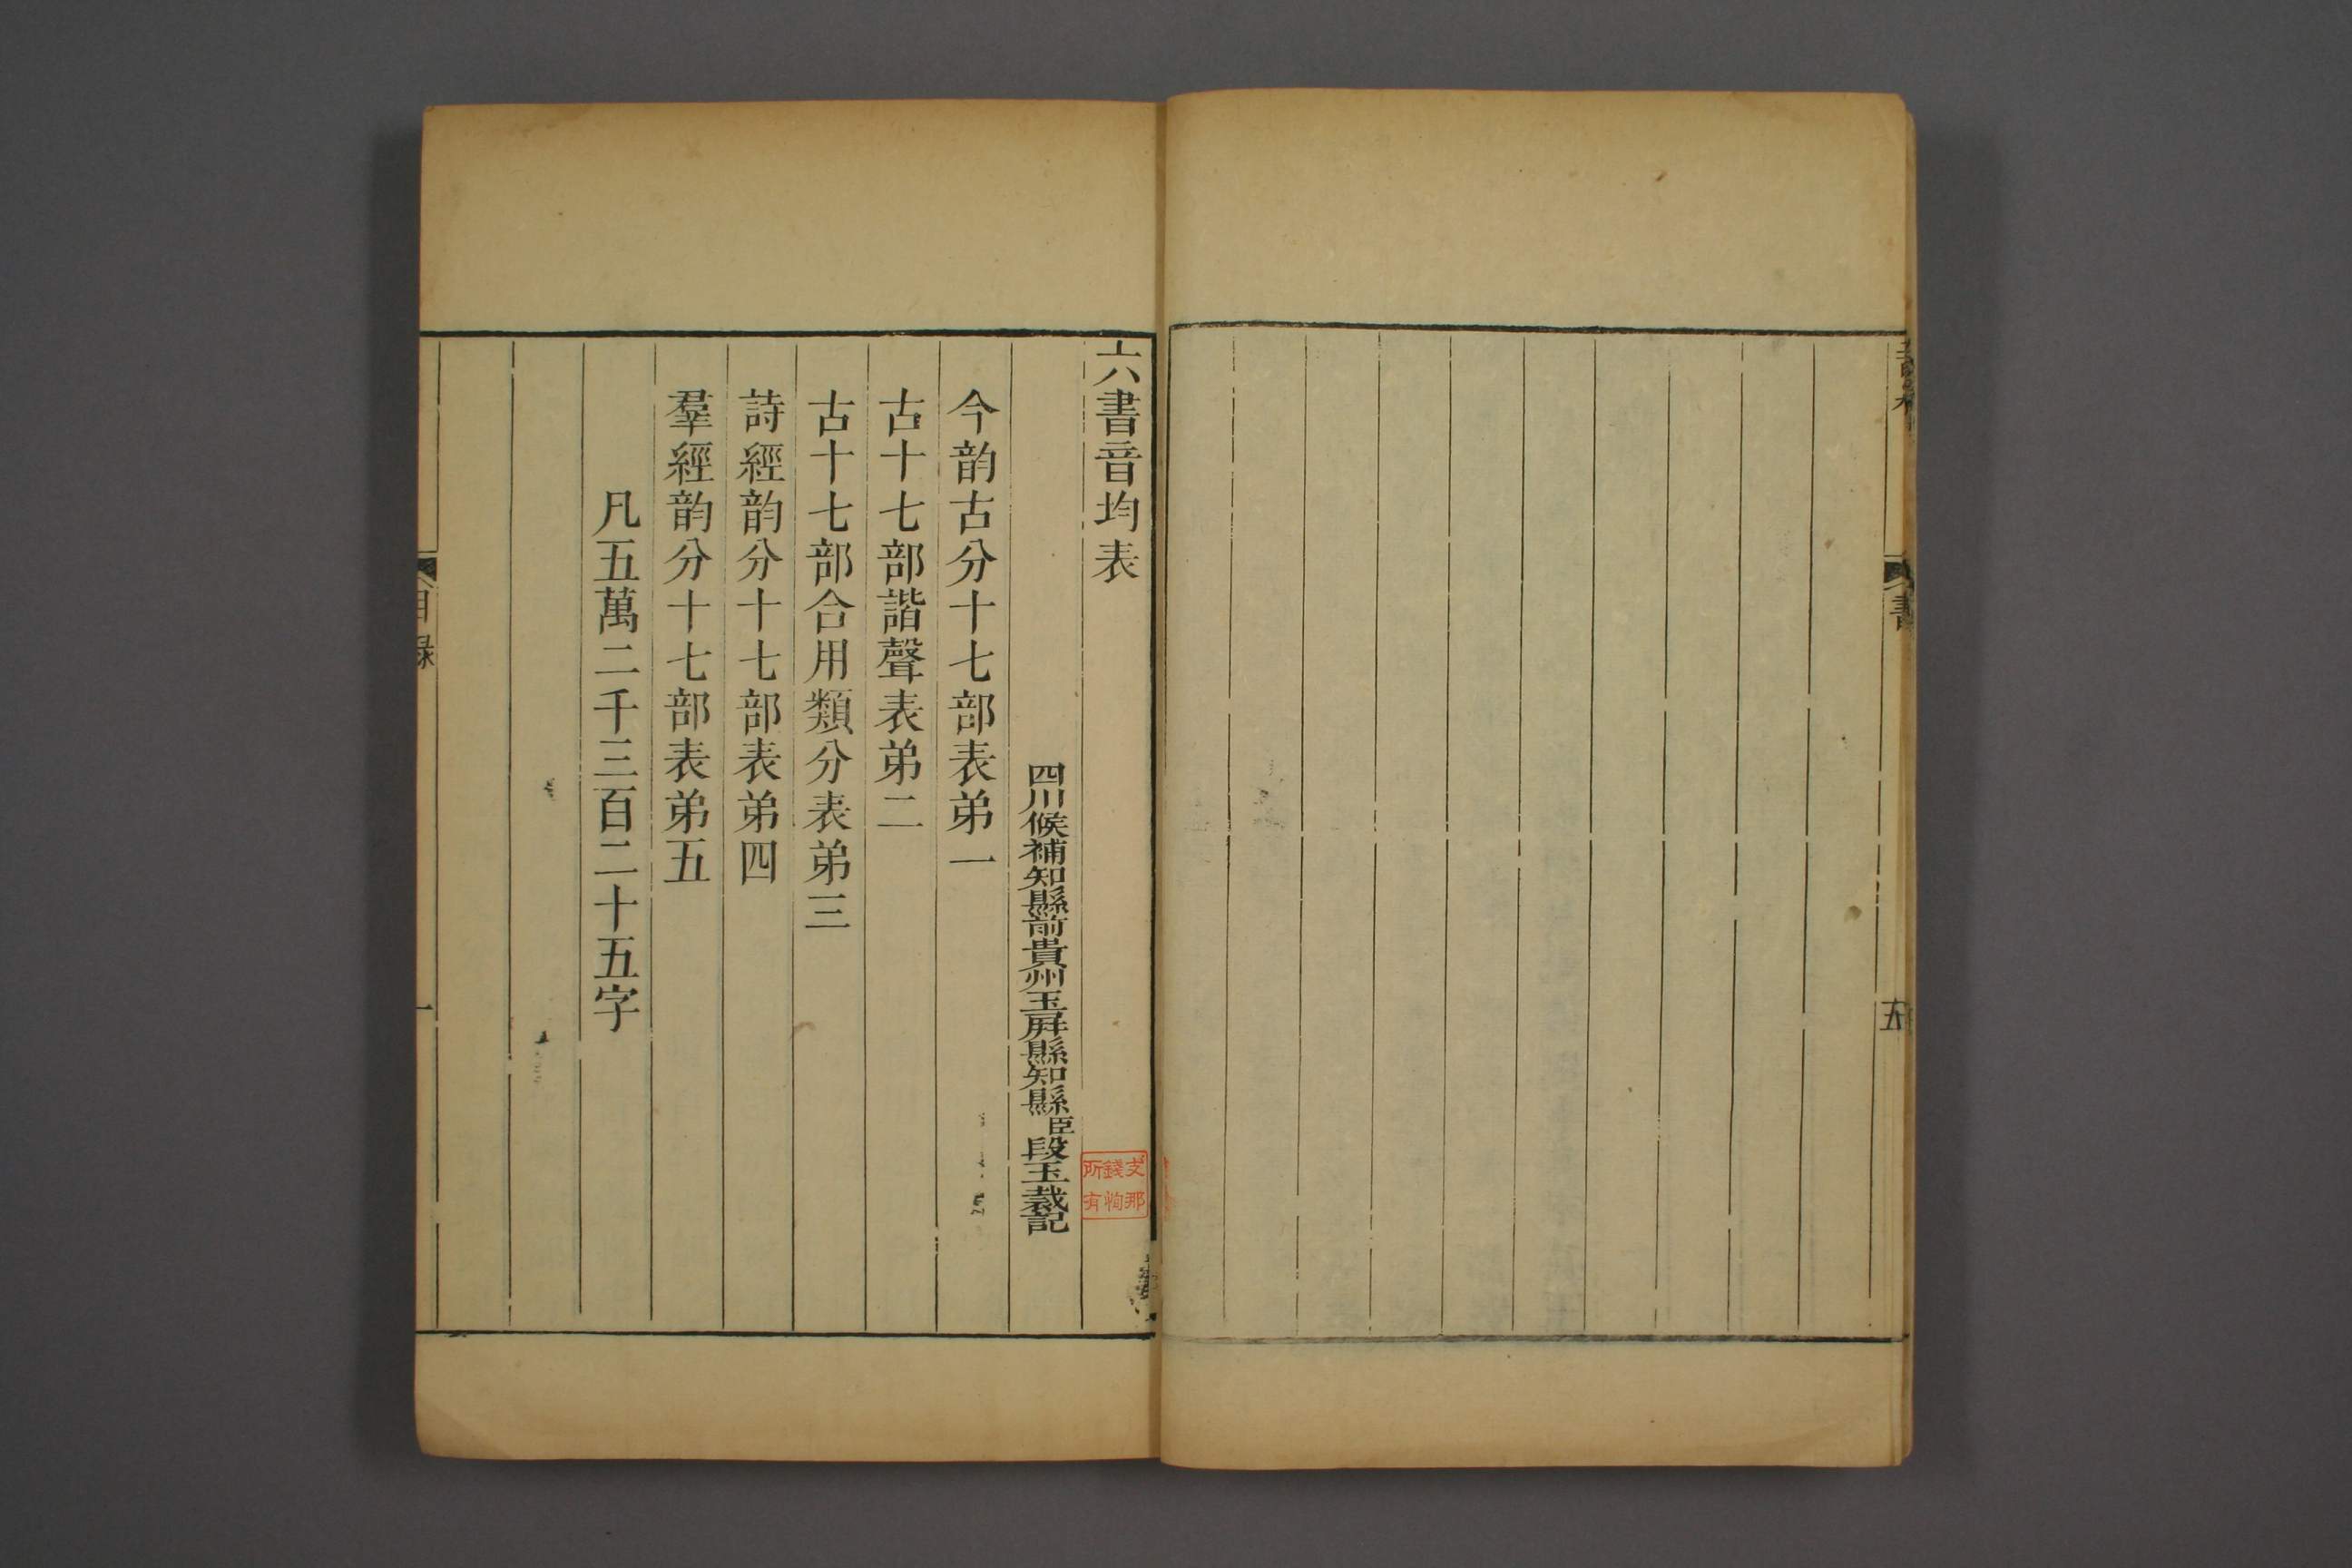 書
五
六書音均表
四川候補知縣前貴州玉屛縣知縣臣段玉裁記
今韵古分十七部表弟一
古十七部諧聲表弟二
古十七部合用類分表弟三
詩經韵分十七部表弟四
羣經韵分十七部表弟五
凡五萬二千三百二十五字
目錄
一
支那
錢恂
所有